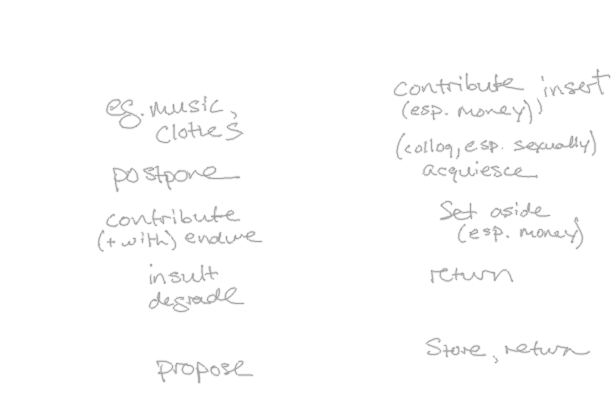 eg. music,
clothes
postpone
contribute
(+ with) endure
insult
degrade
propose
contribute, insert
(esp. money)
(colloq, esp. sexually)
acquiesce
Set aside
(esp. money)
return
Store, return